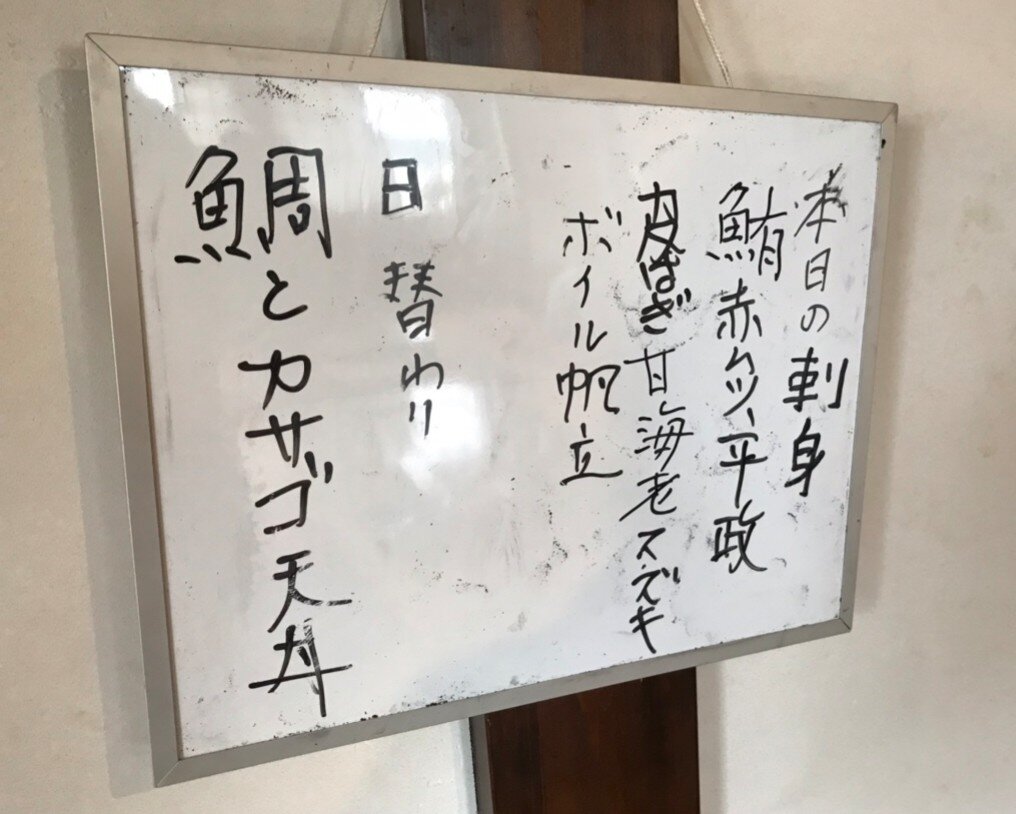 本日の刺身
鮪 赤ムツ、平政
皮はぎ 甘海老 スズキ
ボイル帆立
日替わり
鯛とカサゴ天丼